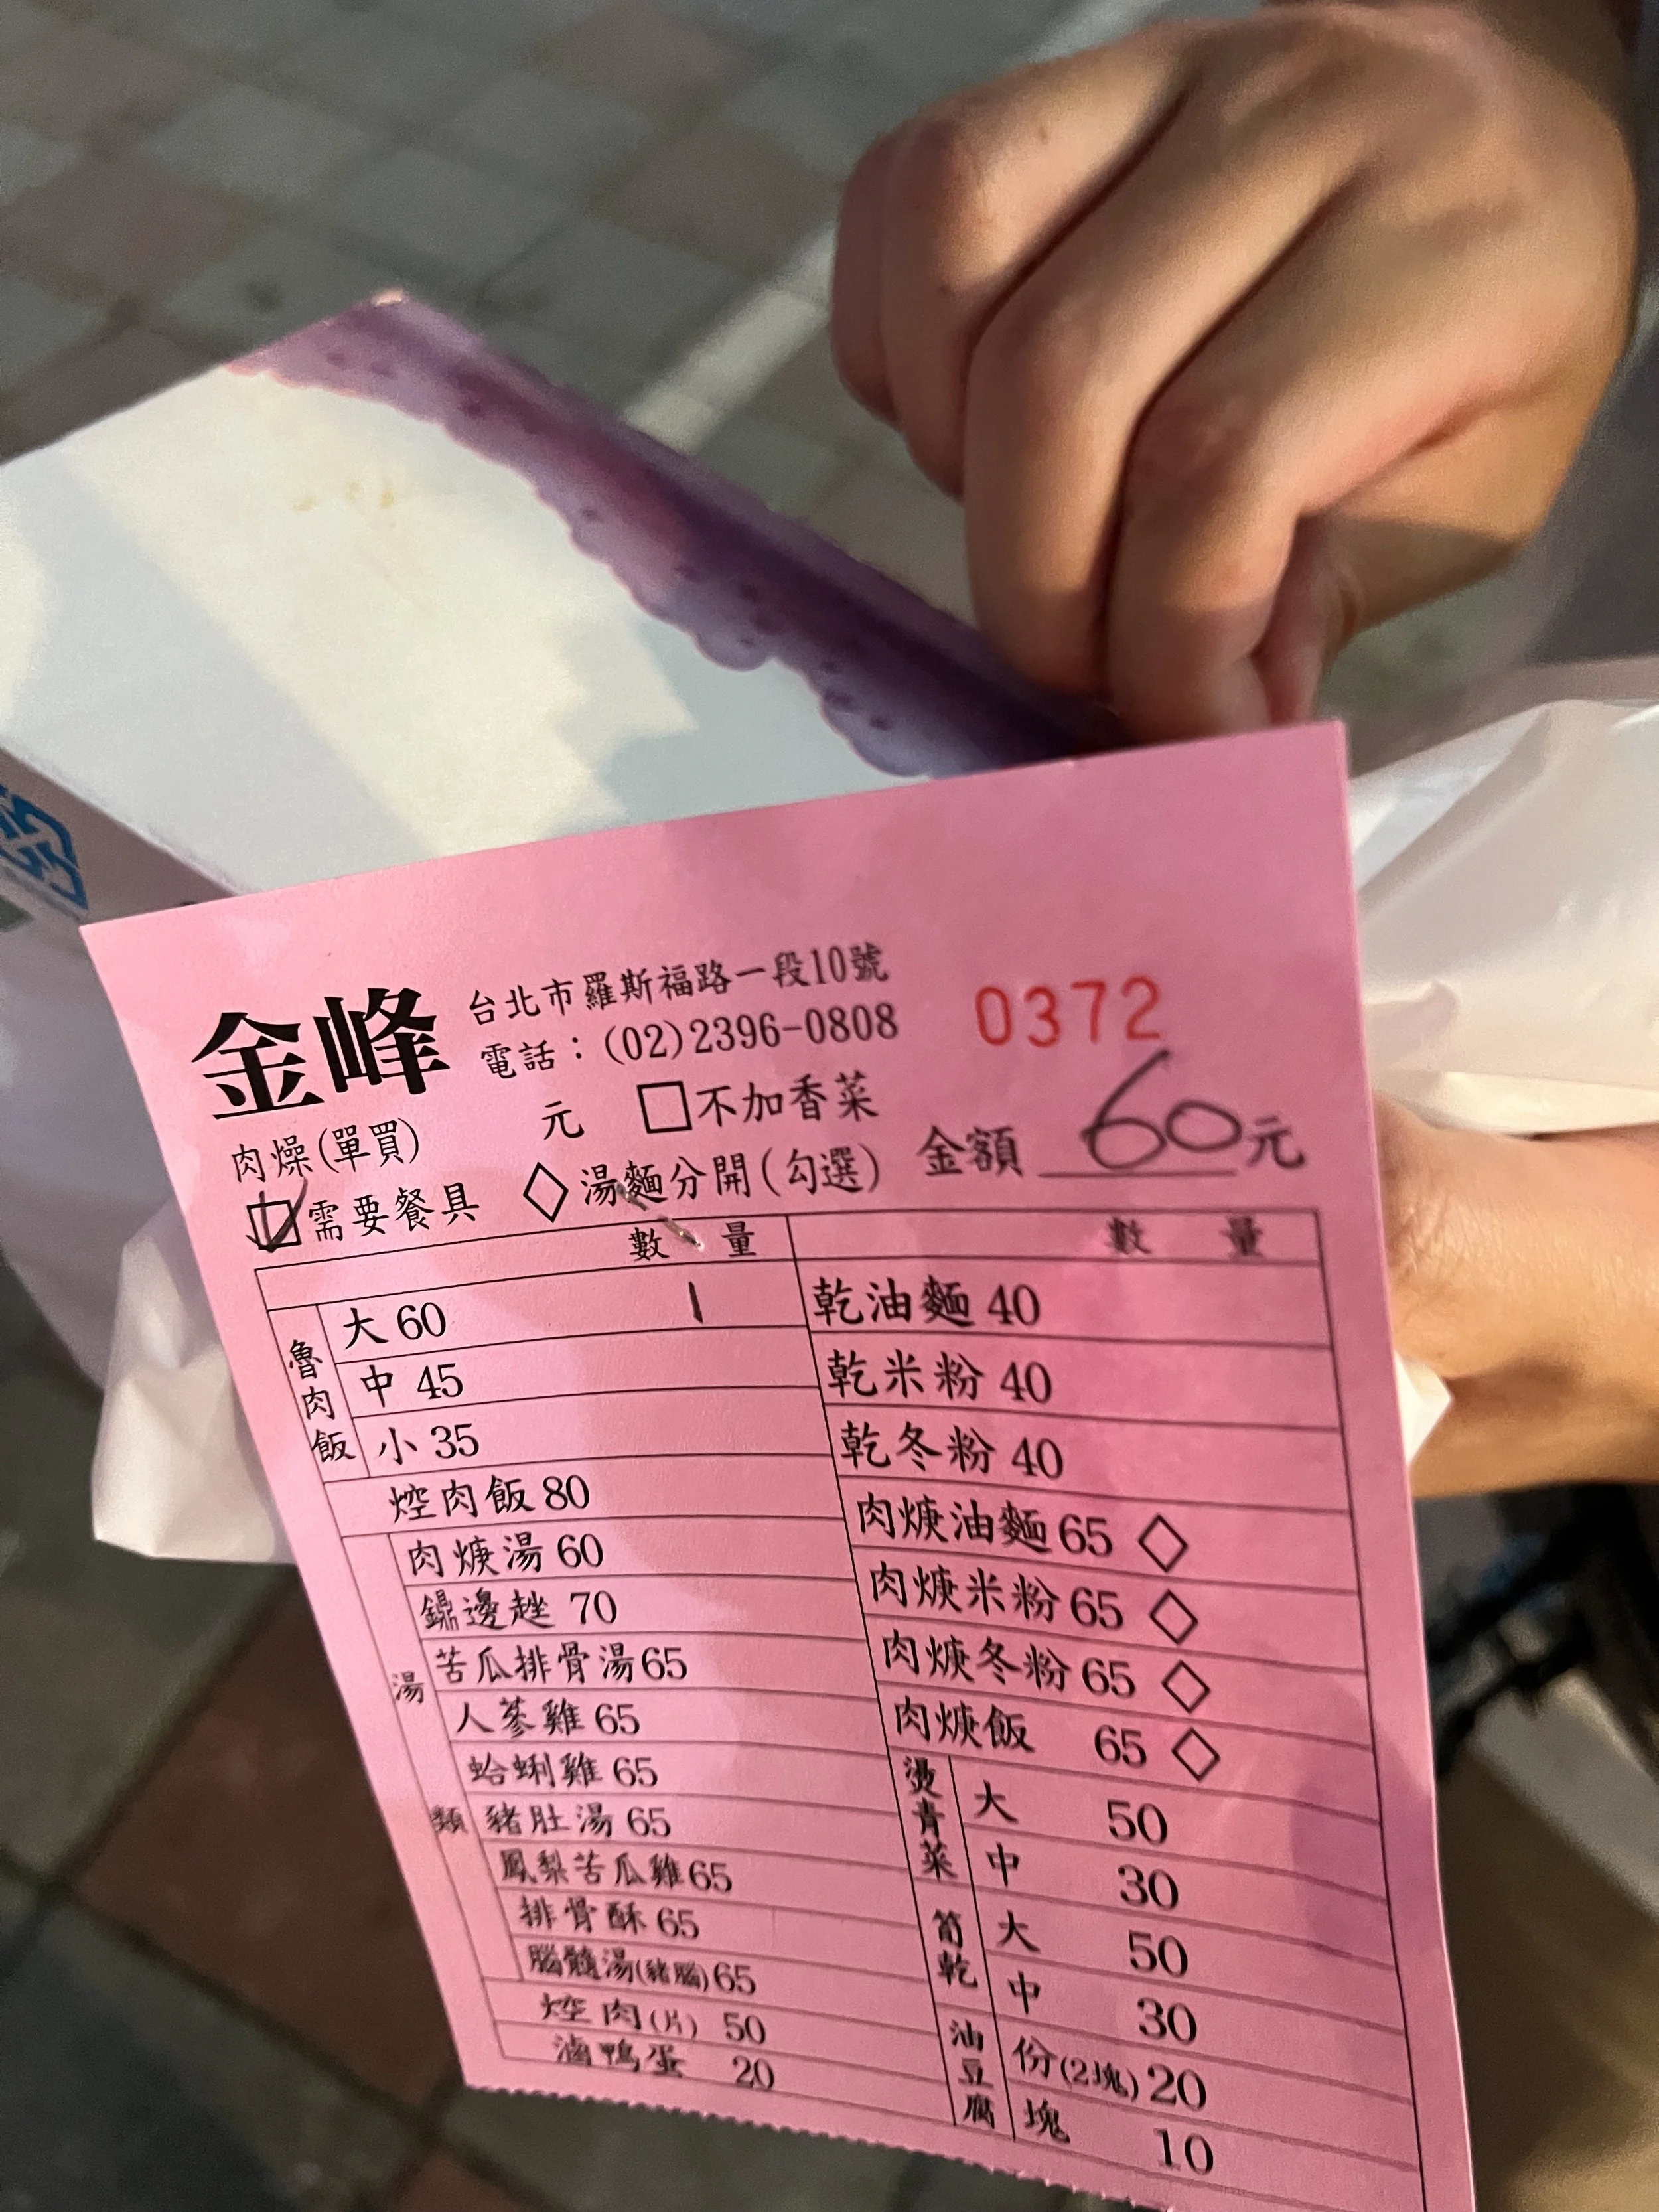 金峰
台北市羅斯福路一段10號
電話：(02)2396-0808
0372
肉燥(單買) 元 □不加香菜
☑需要餐具 ◇湯麵分開(勾選) 金額 60元
數量 數量
魯肉飯
大 60 1
中 45
小 35
焢肉飯 80
湯類
肉焿湯 60
鼎邊趖 70
苦瓜排骨湯 65
人蔘雞 65
蛤蜊雞 65
豬肚湯 65
鳳梨苦瓜雞 65
排骨酥 65
腦髓湯(豬腦) 65
焢肉(片) 50
滷鴨蛋 20
乾油麵 40
乾米粉 40
乾冬粉 40
肉焿油麵 65 ◇
肉焿米粉 65 ◇
肉焿冬粉 65 ◇
肉焿飯 65 ◇
燙青菜
大 50
中 30
筍乾
大 50
中 30
油豆腐
份(2塊) 20
塊 10